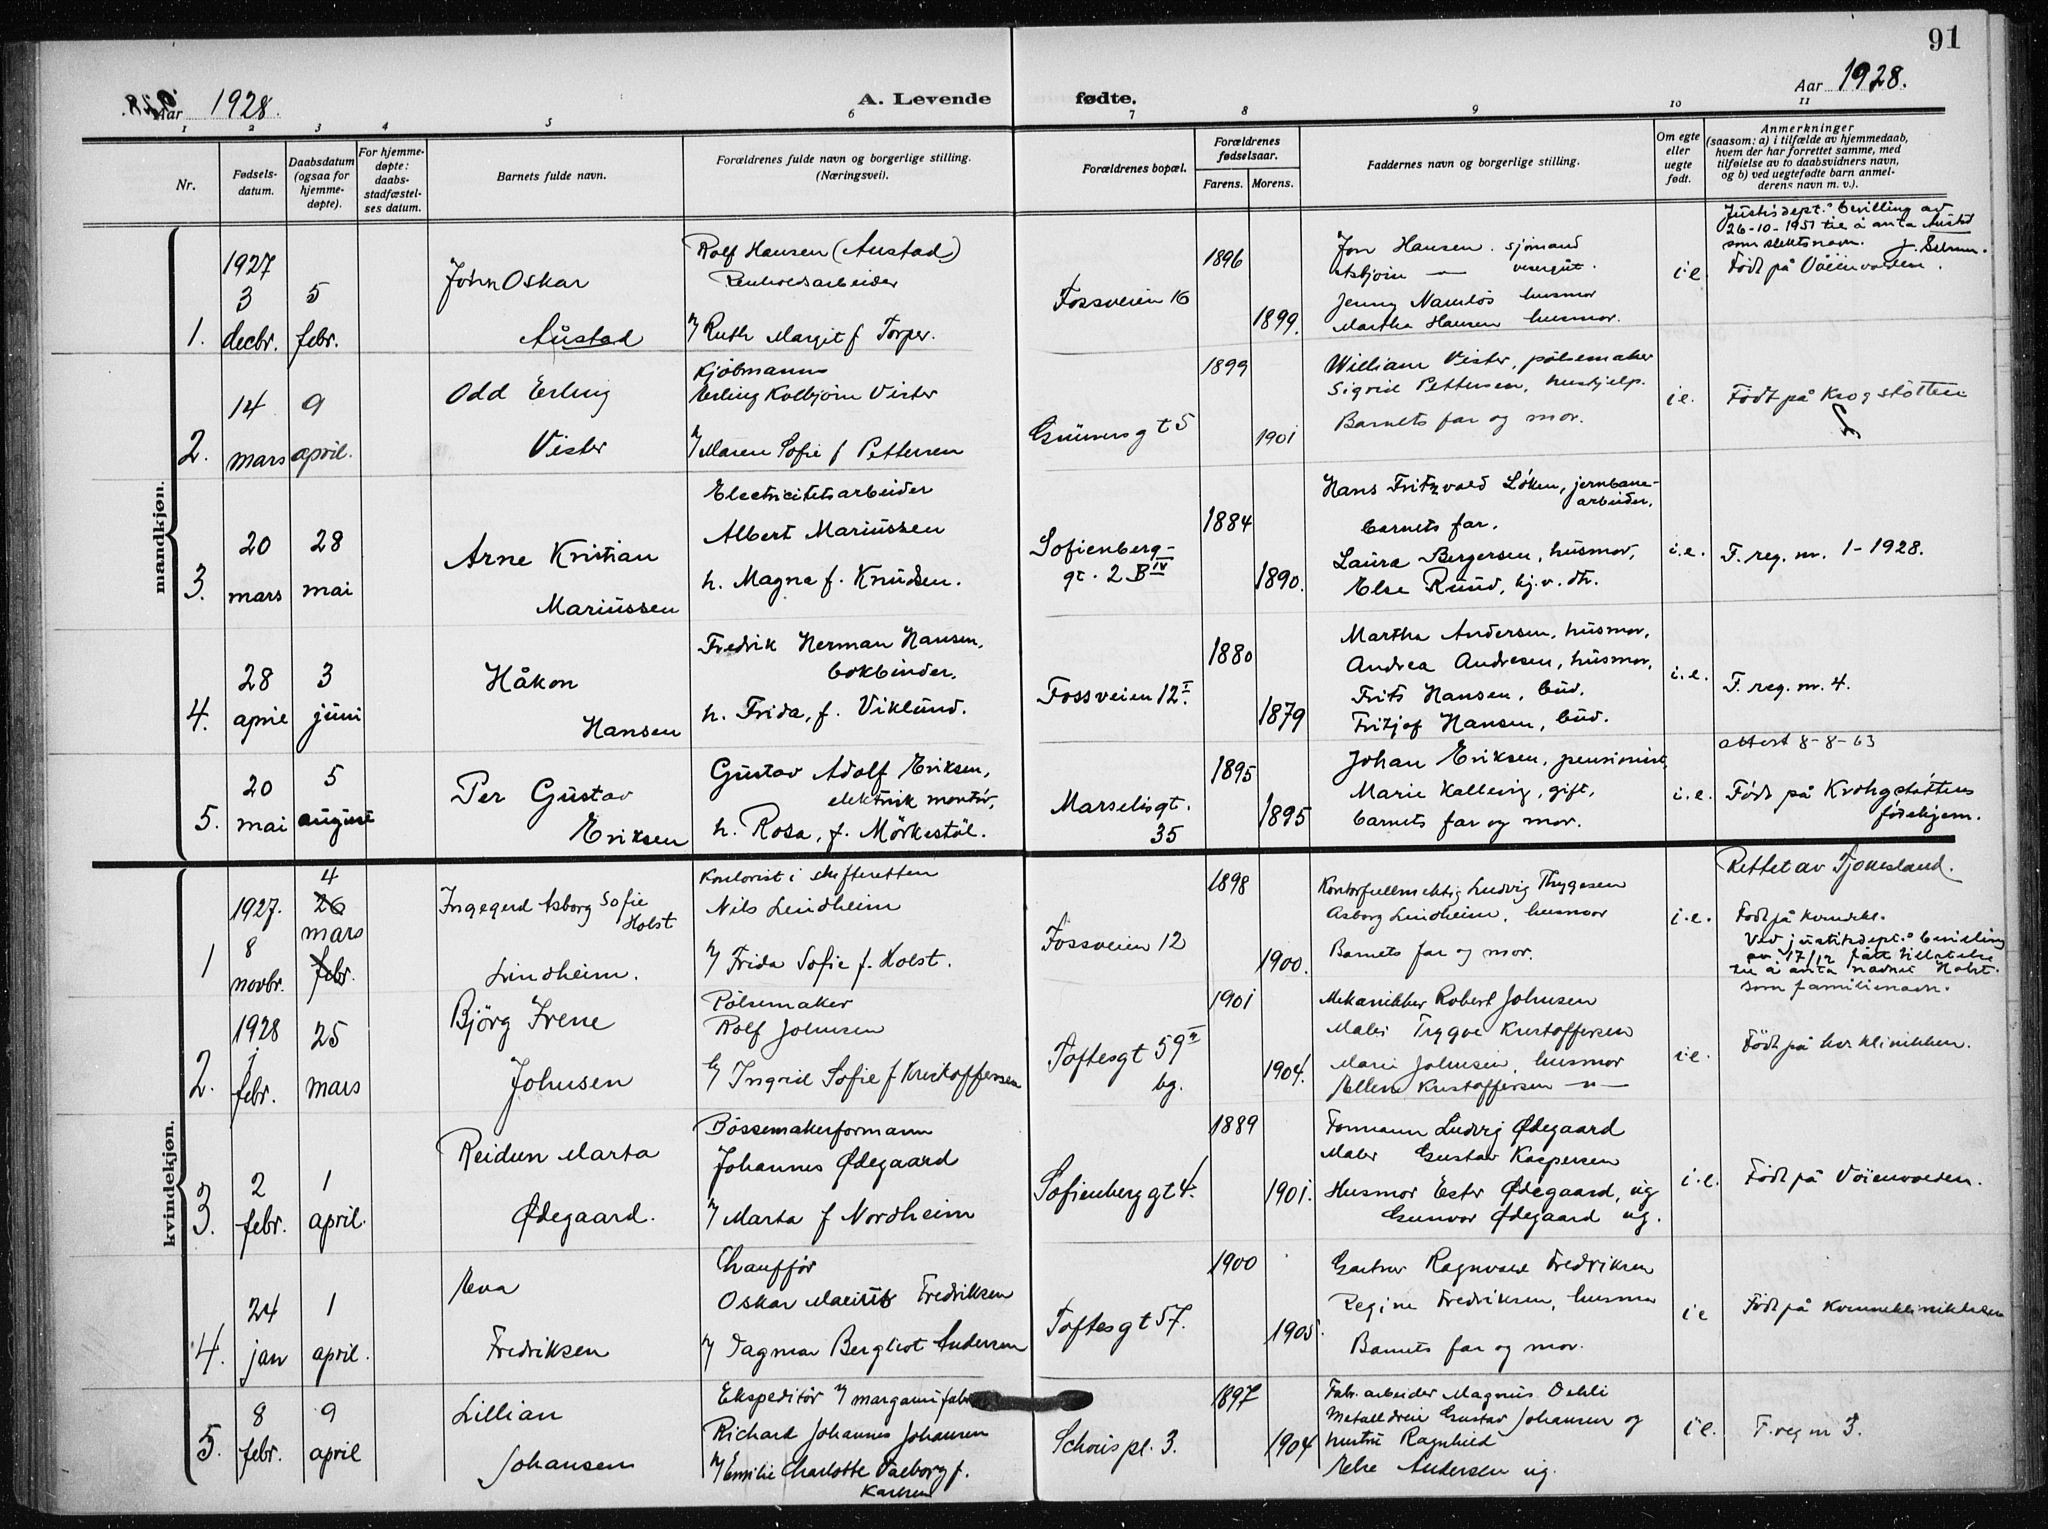 91
Aar 1928.
A. Levende fødte.
Aar 1928.
1 2 3 4 5 6 7 8 9 10 11
Nr.
Fødsels-
datum.
Daabsdatum
(ogsaa for
hjemme-
døpte).
For hjemme-
døpte:
daabs-
stadfæstel-
ses datum.
Barnets fulde navn.
Forældrenes fulde navn og borgerlige stilling.
(Næringsvei).
Forældrenes bopæl.
Forældrenes
fødselsaar.
Farens. Morens.
Faddernes navn og borgerlige stilling.
Om egte
eller
uegte
født.
Anmerkninger
(saasom: a) i tilfælde av hjemmedaab,
hvem der har forrettet samme, med
tilføielse av to daabsvidners navn,
og b) ved uegtefødte barn anmel-
derens navn m. v.).
mandkjøn.
1.
1927
3
decbr.
5
febr.
John Oskar
Austad
Rolf Hansen (Austad)
Renholdsarbeider
Ruth Margit f Torper.
Fossveien 16
1896
1899.
Jon Hansen. sjömand
Asbjörn — visergut.
Jenny Namlös husmor
Martha Hansen husmor.
i e
Justisdept.s bevilling av
26-10-1951 til å anta Austad
som slektsnavn.
Född på Vöienvolden.
2.
14
mars
9
april.
Odd Erling
Vister
Kjöbmann
Erling Kolbjörn Vister
Maren Sofie f Pettersen
Grünersgt 5
1899
1901
William Vister, pölsemaker
Sigrid Pettersen, hushjelp.
Barnets far og mor.
i e.
Födt på Krogstötten
3.
20
mars
28
mai
Arne Kristian
Mariussen
Electricitetsarbeider
Albert Mariussen
h. Magna f. Knudsen.
Sofienberg-
gt. 2 B IV
1884
1890.
Hans Fritzvold Löken, jernbane-
arbeider,
barnets far.
Laura Bergersen, husmor,
Else Rund, hj.v. dtr.
i.e.
F. reg. nr. 1-1928.
4.
28
april
3
juni
Håkon
Hansen
Fredrik Herman Hansen,
bokbinder.
h. Frida, f. Viklund.
Fossveien 12 I
1880
1879
Martha Andersen, husmor,
Andrea Andresen, husmor,
Frits Hansen, bud.
Fritjof Hansen, bud.
i.e.
F. reg. nr. 4.
5.
20
mai
5
august
Per Gustav
Eriksen
Gustav Adolf Eriksen,
elektrisk montör,
h. Rosa, f. Mörkestöl.
Marselisgt.
35
1895
1895
Johan Eriksen, pensionist
Marie Kallevig, gift,
barnets far og mor.
i.e.
attest 8-8-63
Födt på Krohgstöttens
födehjem.
kvindekjøn.
1
1927.
8
novbr.
4
26
mars
febr.
Ingegerd Asborg Sofie
Holst
Lindheim.
Kontorist i skifteretten
Nils Lindheim
Frida Sofie f. Holst.
Fossveien 12
1898
1900.
Kontorfullmektig Ludvig Thygesen
Asborg Lindheim, husmor
Barnets far og mor.
i.e.
Rettet av Tjomesland.
Födt på kvindekl.
Ved justitsdept.s bevilling
av 17/12 fått tillatelse
til å anta navnet Holst.
som familienavn.
2.
1928
1
febr.
25
mars
Björg Irene
Johnsen
Pölsemaker
Rolf Johnsen
Ingrid Sofie f Kristoffersen
Toftesgt 59 II
bg.
1901
1904.
Mekanikker Robert Johnsen
Maler Trygve Kristoffersen
Marie Johnsen, husmor
Ellen Kristoffersen —"—
i e.
Födt på kv.klinikken.
3.
2
febr.
1
april.
Reidun Marta
Ødegaard.
Bössemakerformann
Johannes Ødegaard
Marta f Nordheim
Sofienberggt 4.
1889
1901.
Formann Ludvig Ødegaard
Maler Gustav Kaspersen
Husmor Ester Ødegaard, ug
Gunvor Ødegaard ug.
i.e.
Födt på Vöienvolden.
4.
24
jan
1
april.
Eva
Fredriksen
Chaufför
Oskar Marius Fredriksen
Dagmar Bergliot Andersen
Toftesgt 57.
1900
1905.
Gartner Ragnvald Fredriksen
Regine Fredriksen, husmor
Barnets far og mor.
i e
Födt på Kvinneklinikken
5.
8
febr.
9
april
Lillian
Johansen
Ekspeditör margarinfabr
Richard Johannes Johansen
Emilie Charlotte Valborg f.
Karlsen
Schous pl. 3.
1897
1904
Fabr. arbeider Magnus Oehli
Metalldreier Gustav Johansen og
hustru Ragnhild
Else Andersen ug.
i e.
F. reg nr 3.